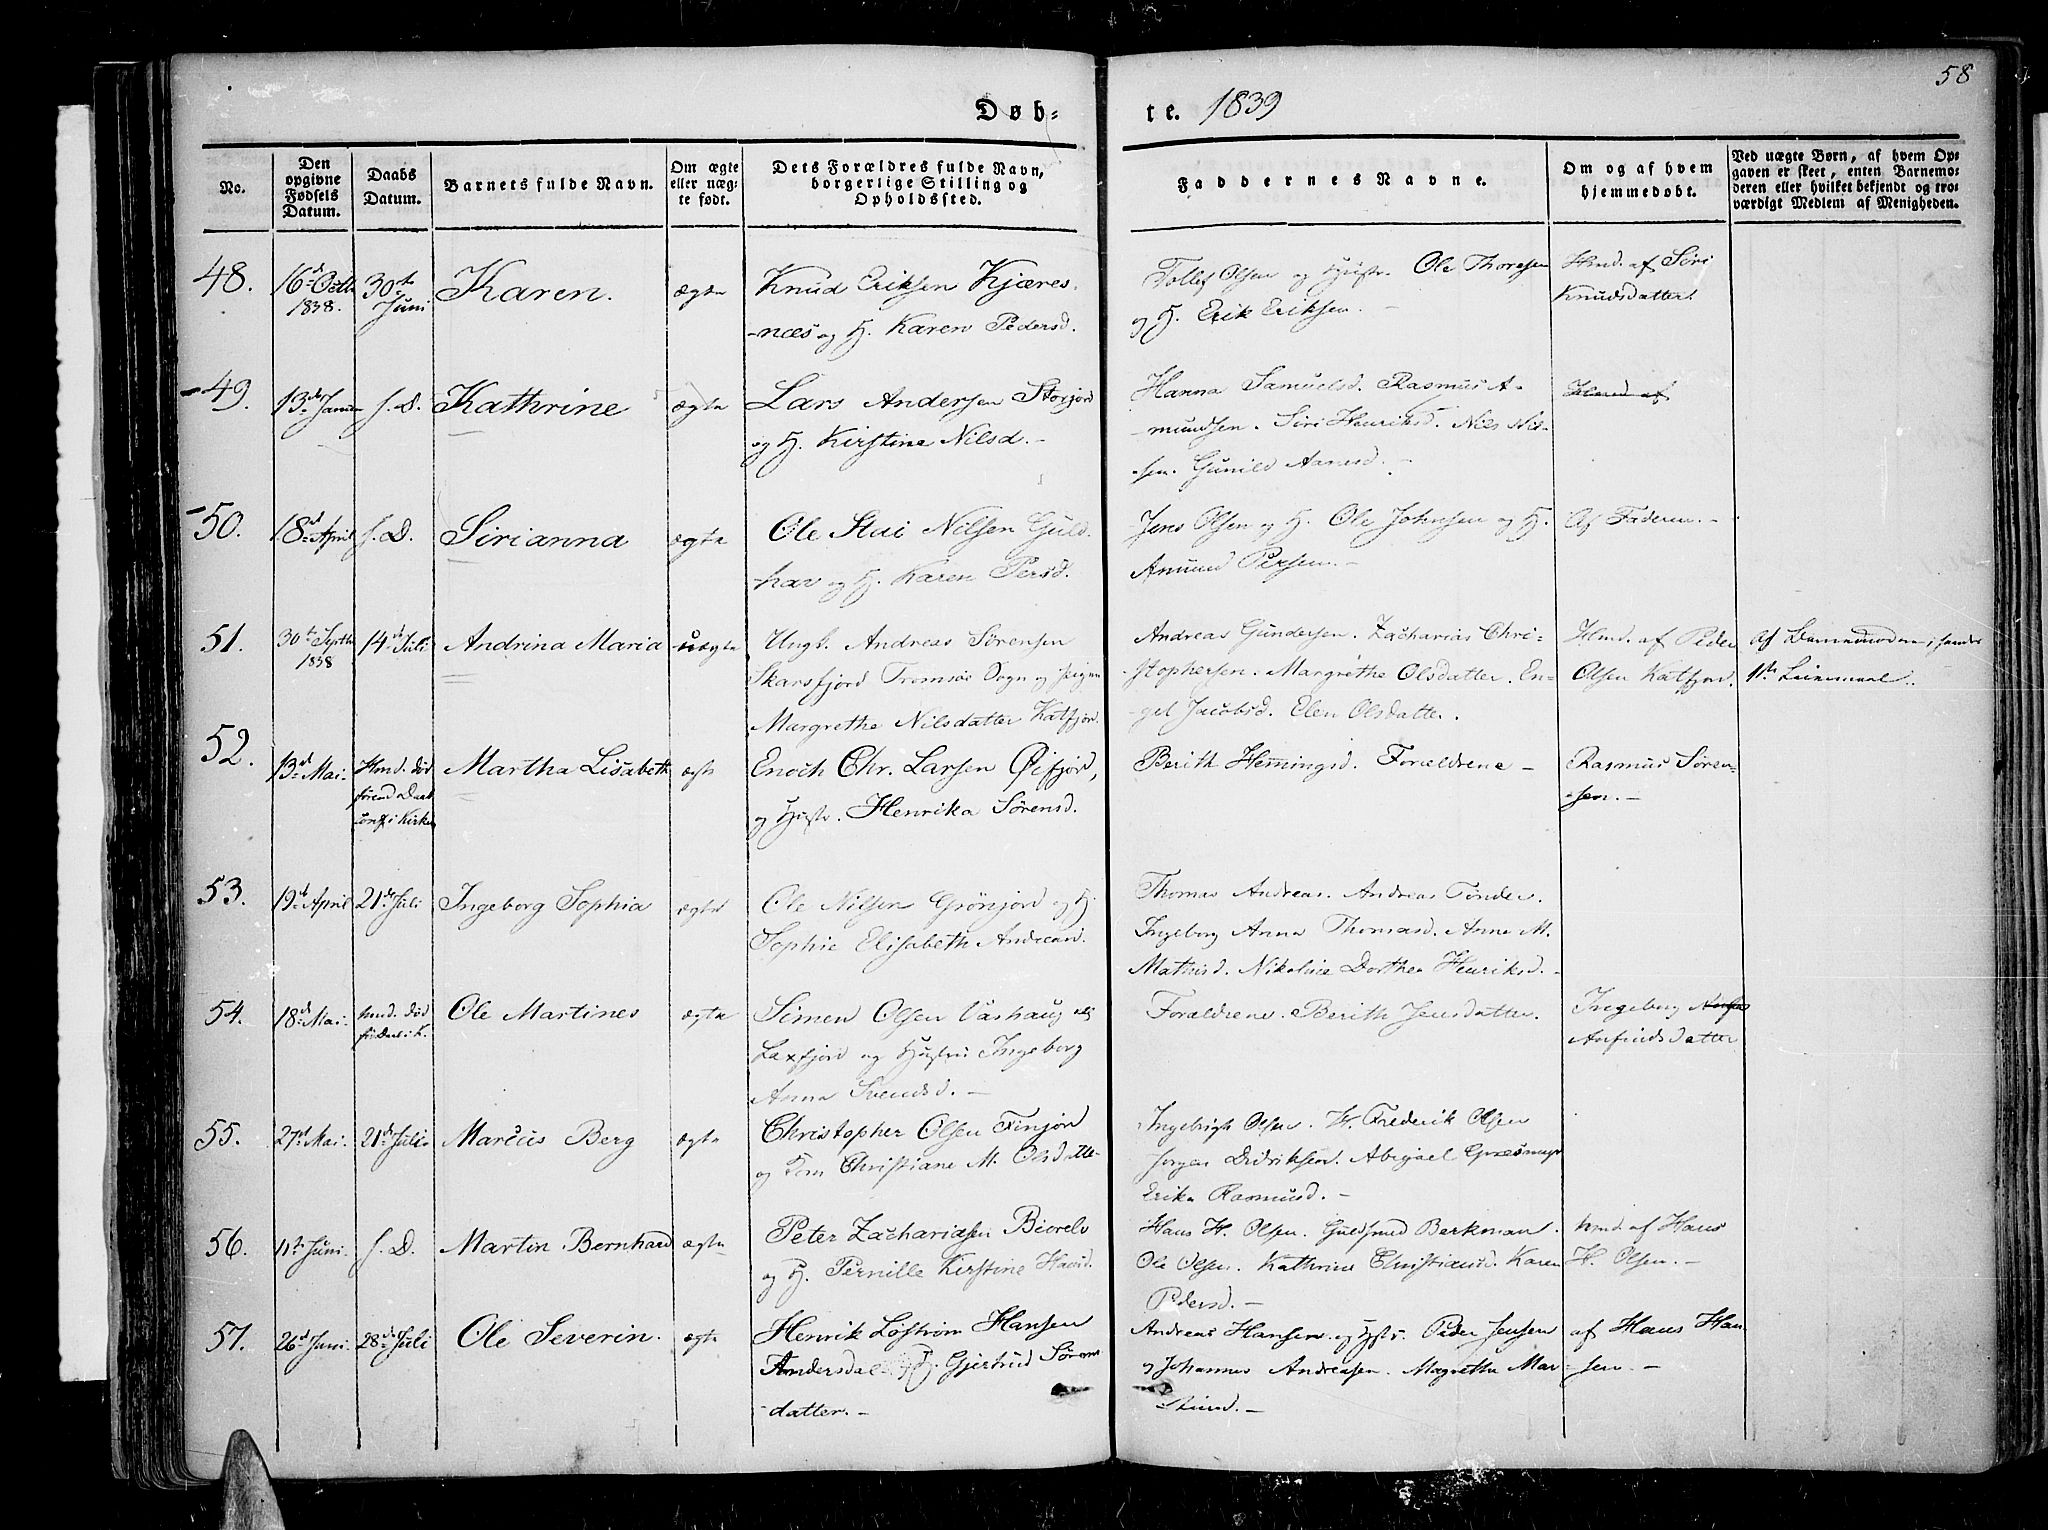 58
Døb-
te. 1839
No.
Den opgivne Fødsels Datum.
Daabs Datum.
Barnets fulde Navn.
Om ægte eller uægte født.
Dets Forældres fulde Navn, borgerlige Stilling og Opholdssted.
Faddernes Navne.
Om og af hvem hjemmedøbt.
Ved uægte Børn, af hvem Opgaven er skeet, enten Barnemoderen eller hvilket bekjendt og troværdigt Medlem af Menigheden.
48.
16d Octb 1838.
30te Juni
Karen.
ægte
Knud Eriksen Kjæres-
næs og H. Karen Pedersd.
Tollef Olsen og Hustr. Ole Thoresen
og H. Erik Eriksen. -
Hmd. af Siri
Knudsdatter.
49.
13de Janu
s. D.
Kathrine
ægte
Lars Andersen Storjord
og H. Kirstine Nilsd. -
Hanna Samuelsd. Rasmus A-
mundsen. Siri Henriksd. Nils Nil-
sen. Gunild Aanesd. -
Hmd af
50.
18d April
s. D.
Sirianna
ægte
Ole Stai Nilsen Guld-
hav og H. Karen Persd.
Jens Olsen og H. Ole Johnsen og H.
Amund Persen. -
Af Faderen. -
51.
30te Septb 1838
14d Juli
Andrina Maria
uægte
Ungk. Andreas Sørensen
Skarsfjord Tromsøe Sogn og pigen
Margrethe Nilsdatter Katfjor.
Andreas Gundersen. Zacharias Chri-
stophersen. Margrethe Olsdatter. En-
gel Jacobsd. Elen Olsdatter.
Hmd. af Peder
Olsen Katfjor.
Af Barnemoderen;
1ste Leiermaal.
52.
13d Mai.
Hmd. død
førend Daab
i Kirken
Martha Lisabeth
ægte
Enoch Chr. Larsen Øifjord,
og Hustr. Henrika Sørensd.
Berith Hemingsd. Forældrene -
Rasmus Søren-
sen. -
53.
19d April
21de Juli
Ingeborg Sophia
ægte
Ole Nilsen Grønjord og H.
Sophie Elisabeth Andreasd.
Thomas Andreas. Andreas Tønder.
Ingeborg Anna Thomasd. Anne M.
Mathisd. Nikoline Dorthea Henriksd. -
54.
18d Mai.
hmd. død
Ole Martines
ægte
Simen Olsen Vashaug
Laxfjord og Hustru Ingeborg
Anna Svendsd. -
Forældrene. Berith Jensdatter.
Ingeborg
Anfindsdatter
55.
27d Mai.
21d Juli.
Marcus Berg
ægte
Christopher Olsen Finjor
og Kone Christiane M. Olsdatte-
Ingebrigt Olsen. H. Frederik Olsen
Jørgen Didriksen. Abigael
Erika Rasmusd. -
56.
11te Juni.
s. D.
Martin Bernhard
ægte
Peter Zachariasen Biorelv
og H. Pernille Kirstine Hansd.
Hans H. Olsen. Guldsmed Berkman.
Ole Olsen. Kathrine Christiansd. Karen
Pedersd. -
hmd. af Hans
H. Olsen. -
57.
26d Juni.
28de Juli
Ole Severin.
ægte
Henrik Løstrøm Hansen
Andersdal og H. Gjertrud Sørens-
datter. -
Andreas Hansen og Hstr. Peder Jensen
og Johannes Andreasen. Magrethe Mar-
thind. -
af Hans Han-
sen. -